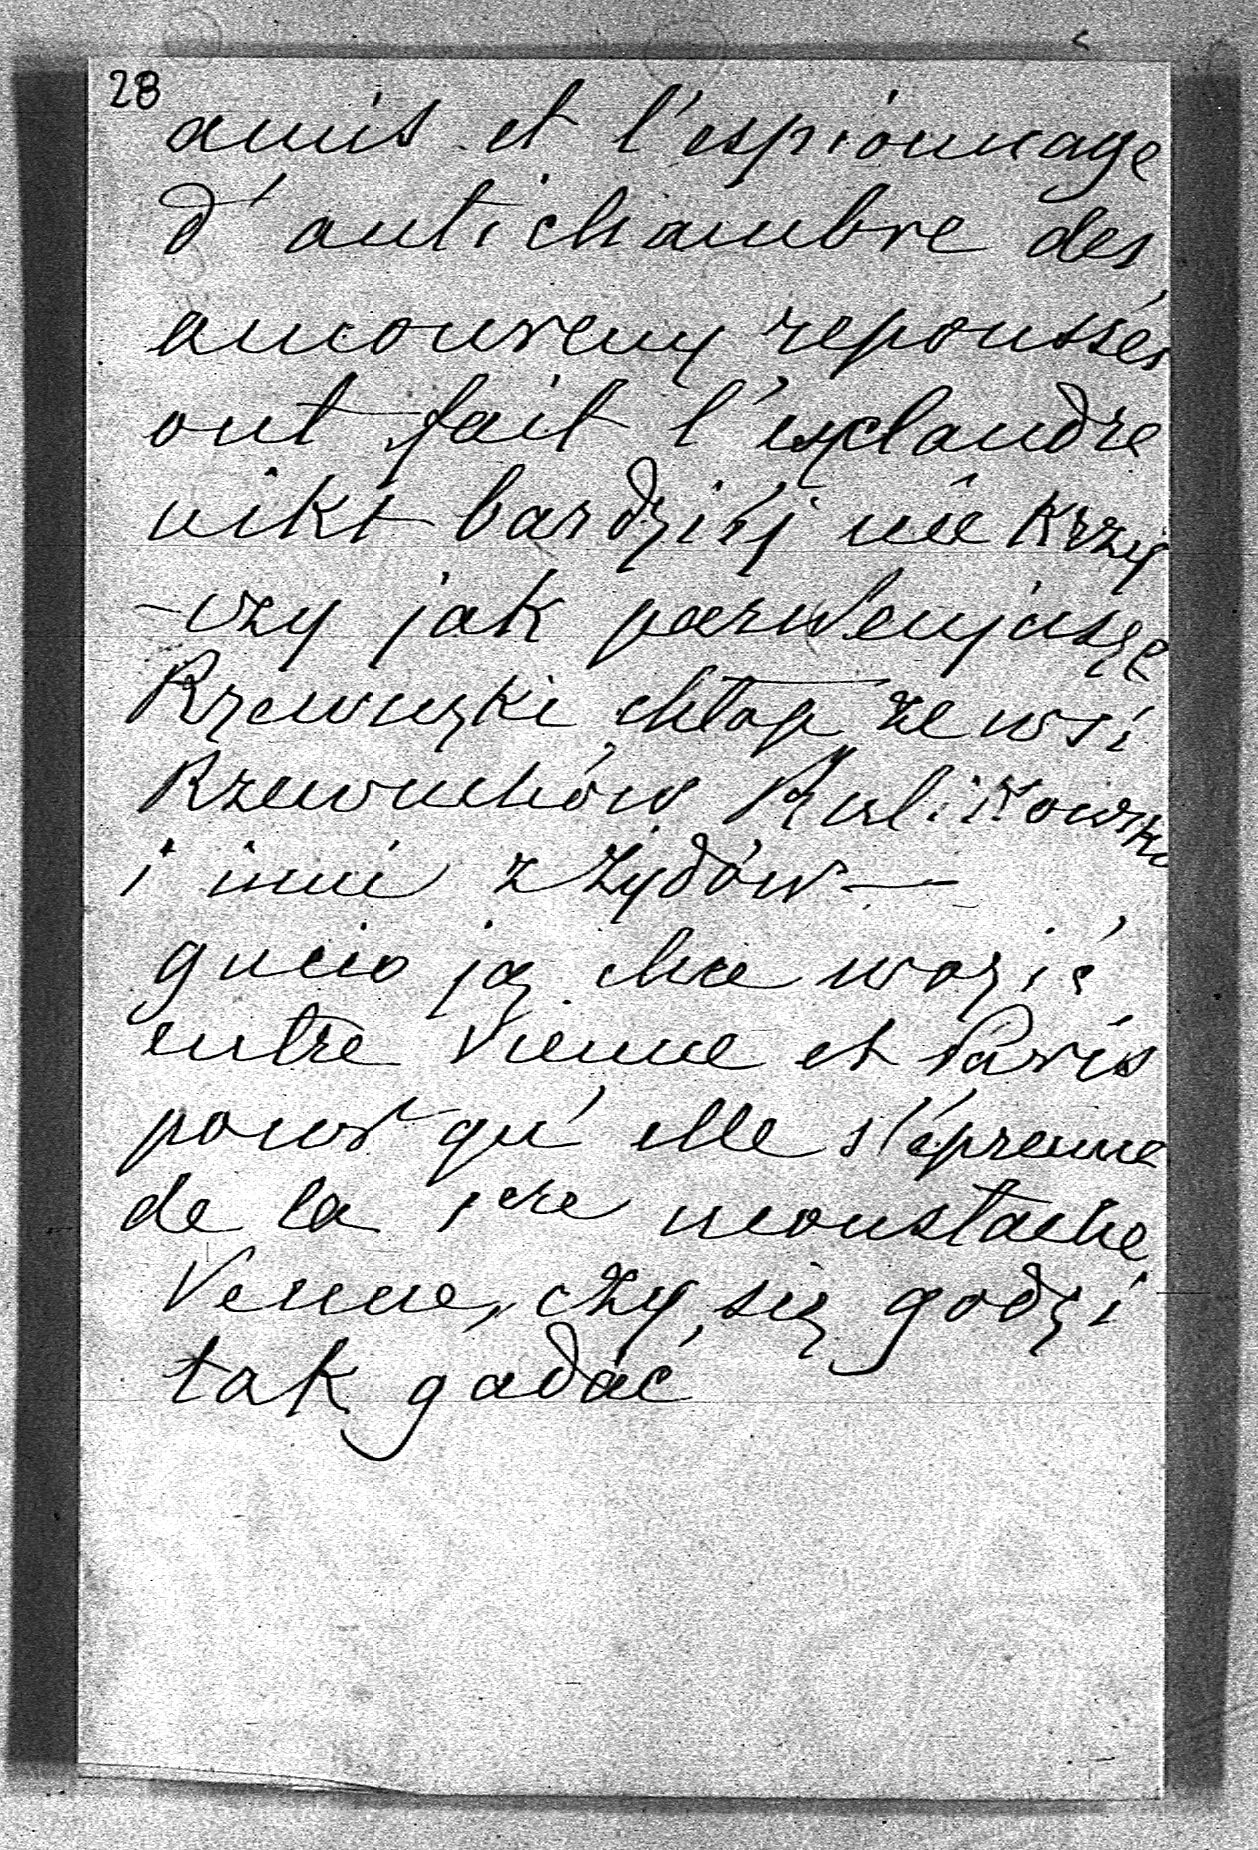 28
amis et l'espionnage
d'antichambre des
amoureux repoussés
ont fait l'esclandre
nikt bardziéj nie krzy
-czy jak parwenjusze
Rzewuski chłop ze wsi
Rzewuchów
i inni z Żydów —
gucio ją chce wozić
entre Vienne et Paris
pour qu'elle s'éprenne
de la 1ere moustache
Venue, czy się godzi
tak gadać